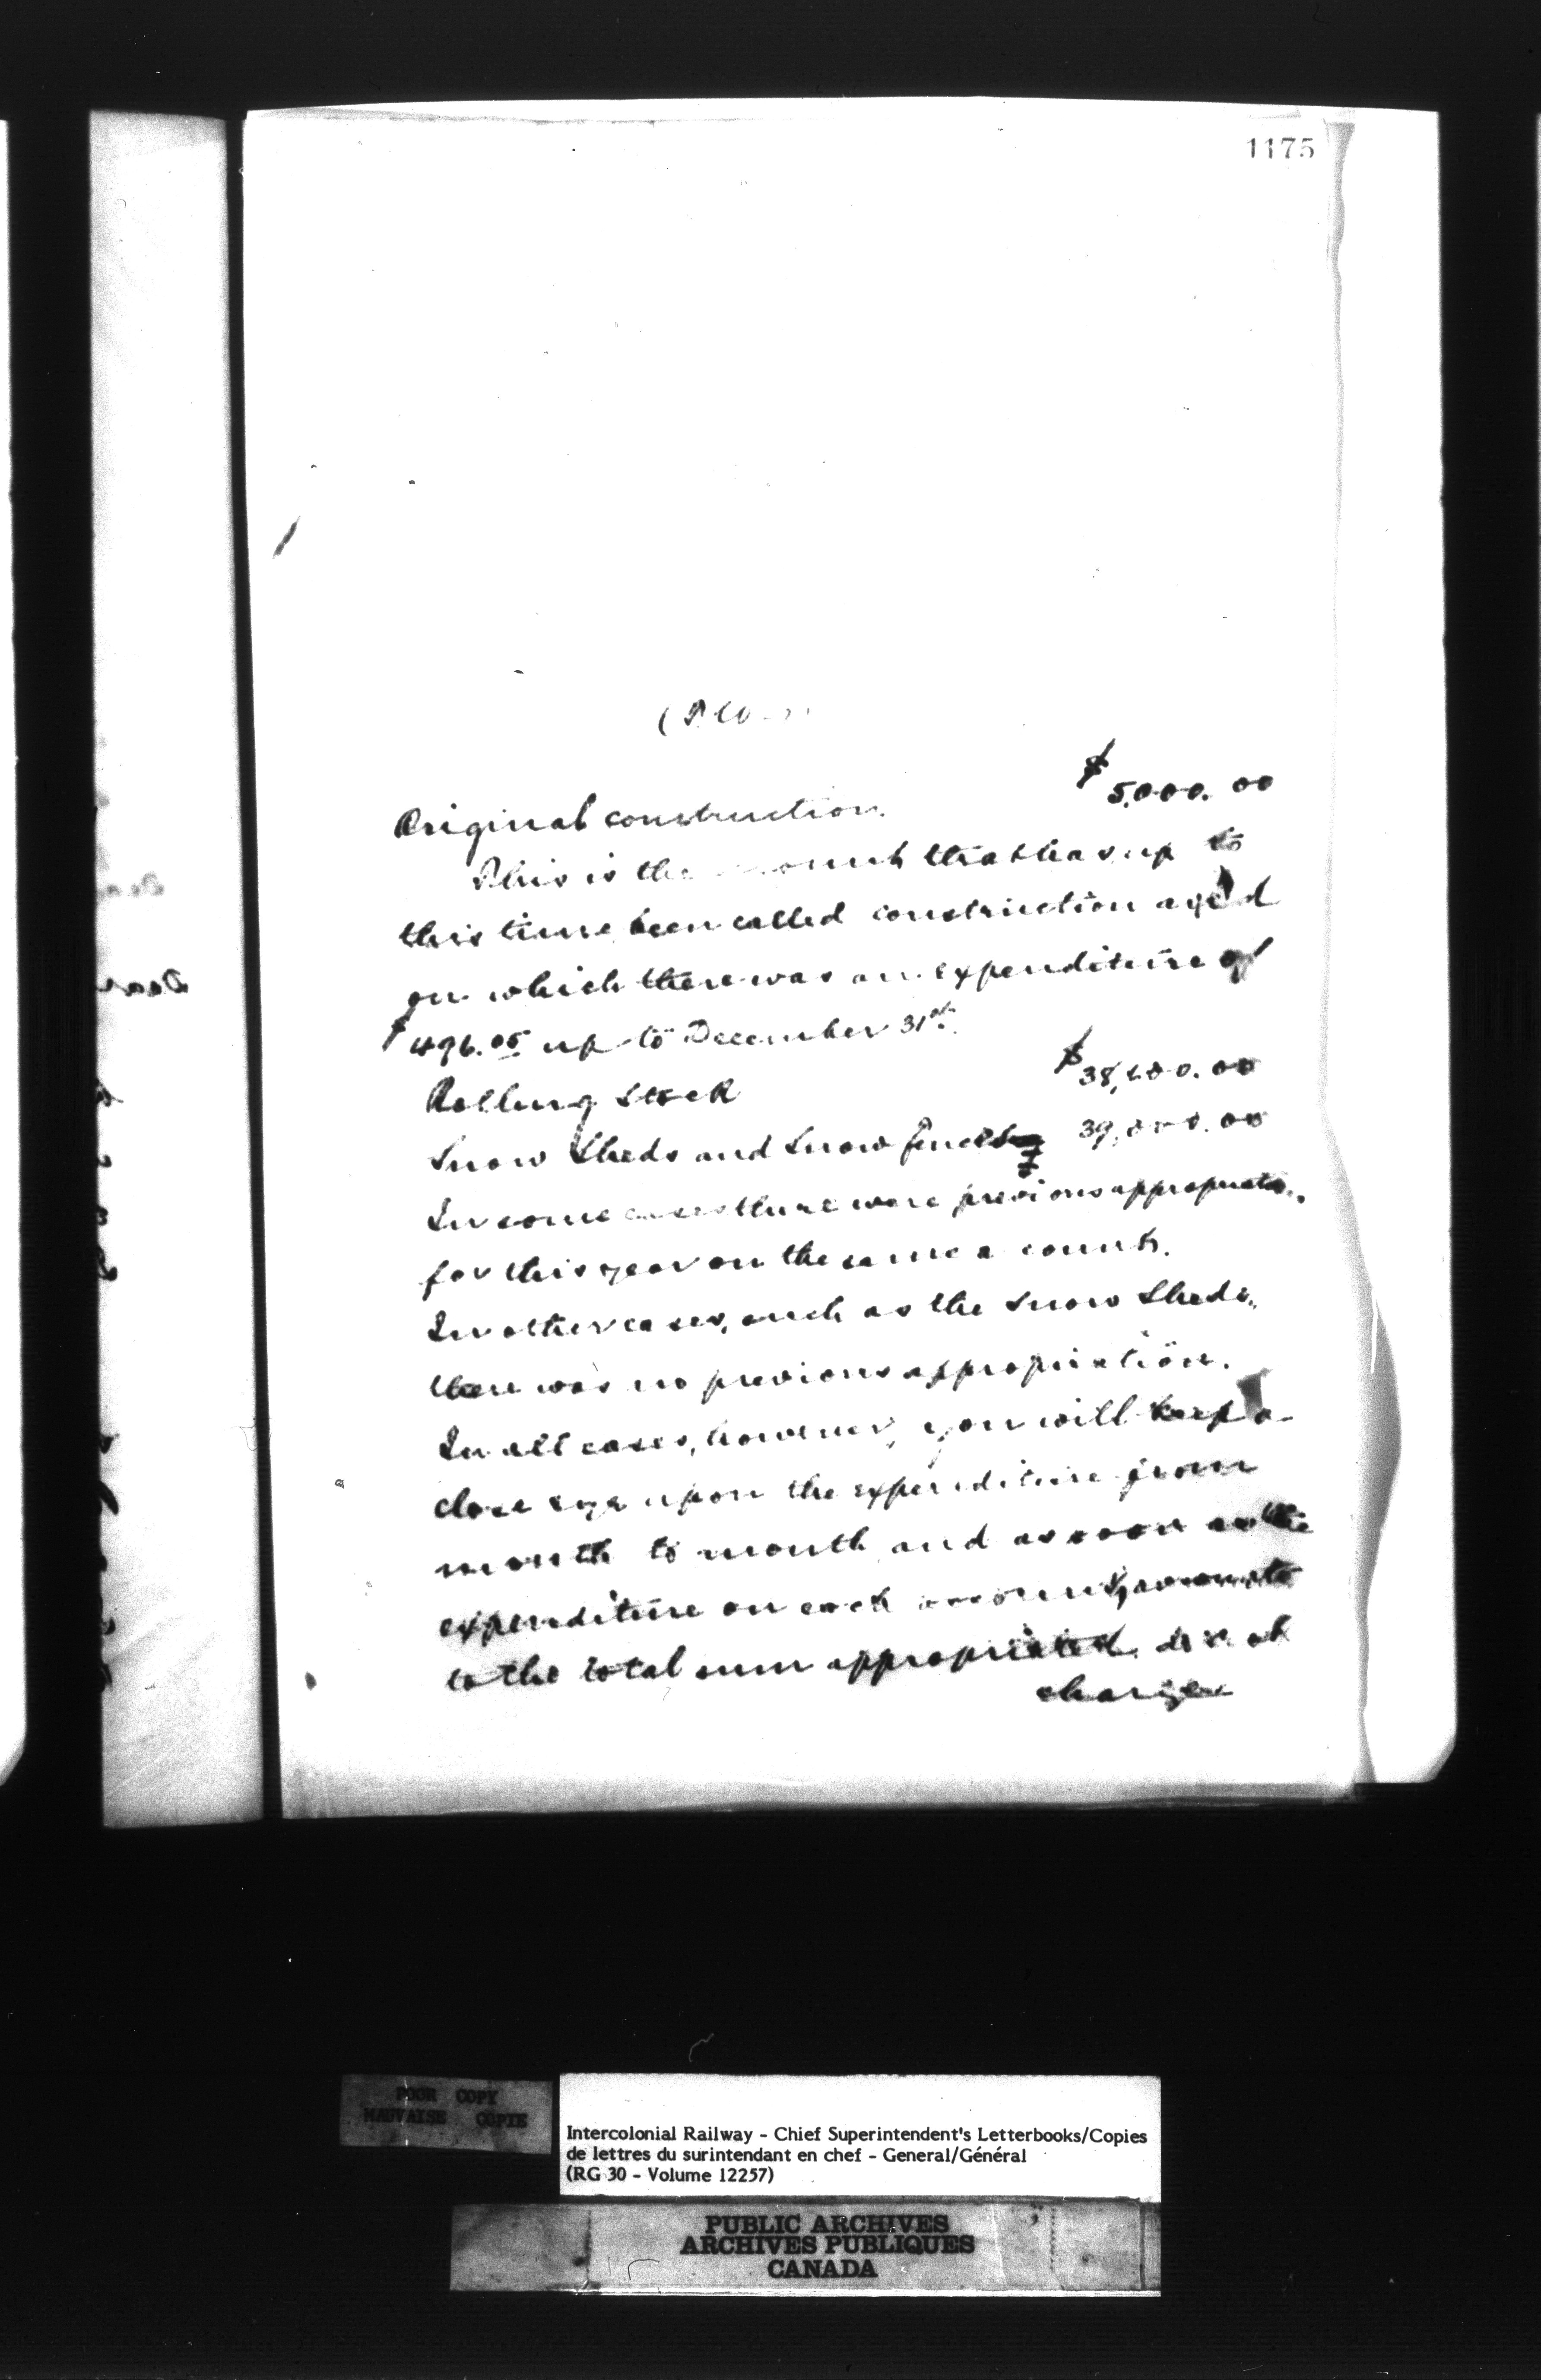 1175
Original construction. $5,000.00
This is the amount that has up to
this time been called construction and
on which there was an expenditure of
$496.05 up to December 31st.
Rolling Stock $38,200.00
Snow Sheds and Snow fences 39,000.00
In some cases there were previous appropriatn.
for this year on the same account.
In other cases, such as the Snow Sheds,
there was no previous appropriation.
In all cases, however, you will keep a
close eye upon the expenditure from
month to month and as soon as the
expenditure on each account, amounts
to the total sum appropriated,
charge
POOR COPY
MAUVAISE COPIE
Intercolonial Railway - Chief Superintendent's Letterbooks/Copies
de lettres du surintendant en chef - General/Général
(RG 30 - Volume 12257)
PUBLIC ARCHIVES
ARCHIVES PUBLIQUES
CANADA